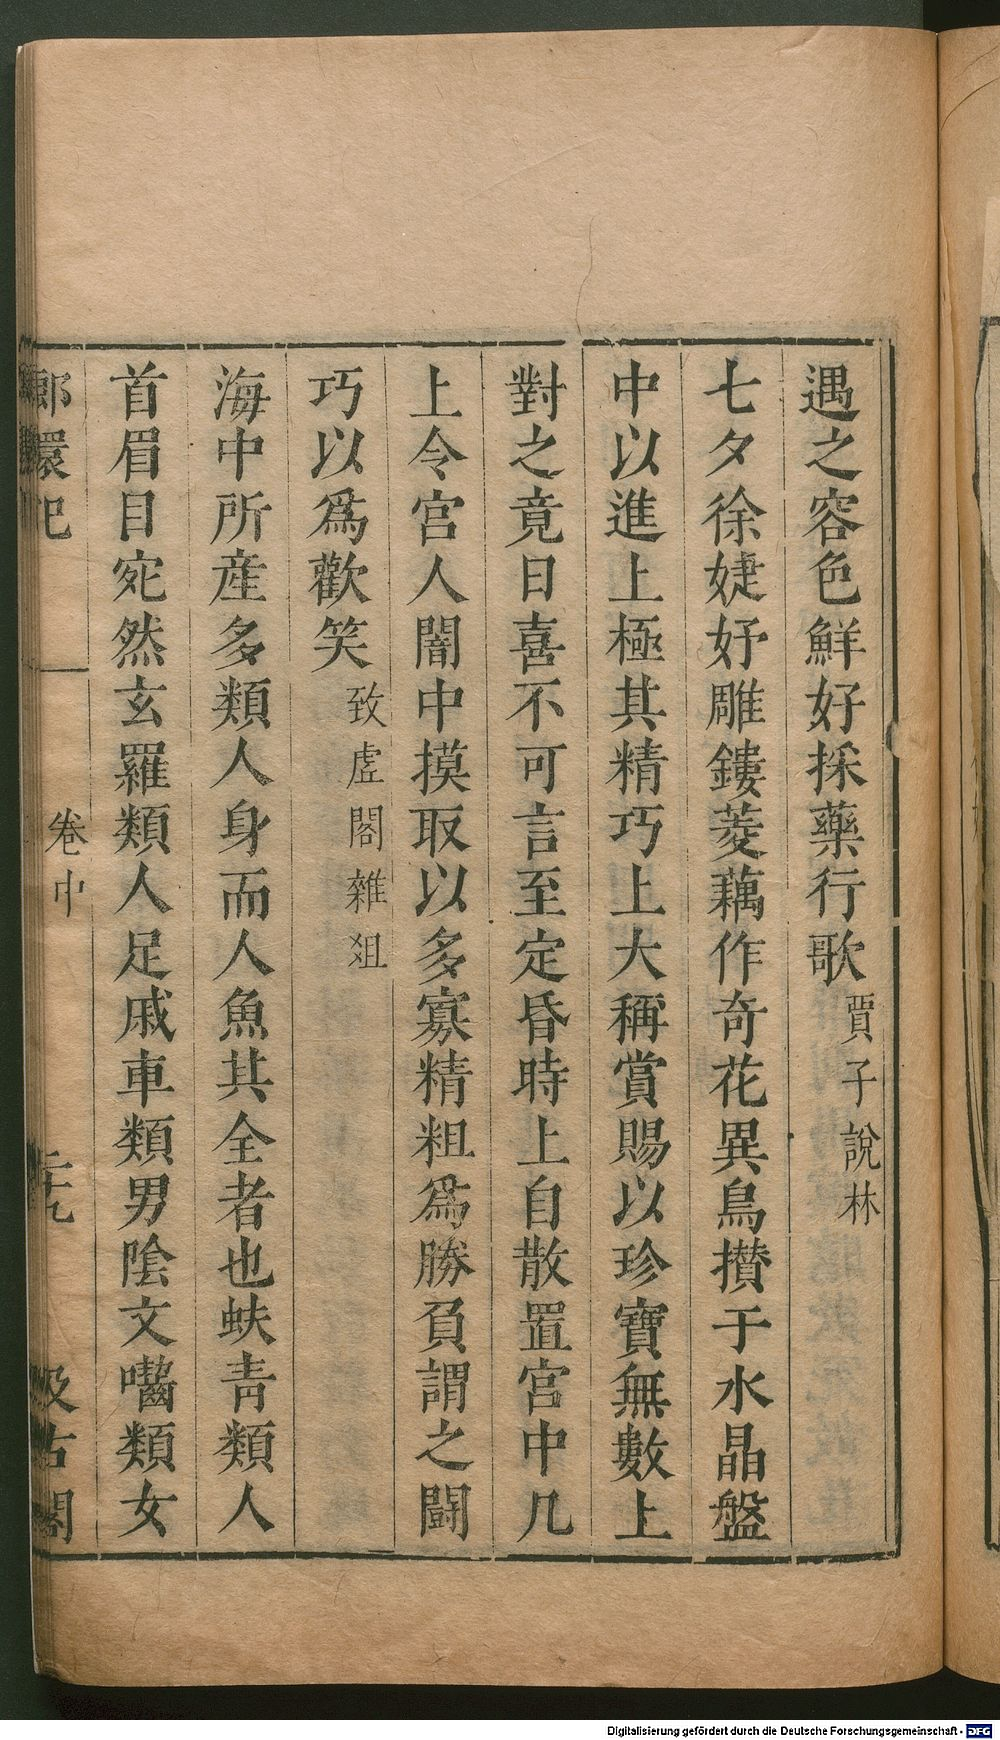 遇之容色鮮好採藥行歌賈子說林
七夕徐婕妤雕鏤菱藕作奇花異鳥攢于水晶盤
中以進上極其精巧上大稱賞賜以珍寶無數上
對之竟日喜不可言至定昏時上自散置宮中几
上令宮人闇中摸取以多寡精粗爲勝負謂之鬪
巧以爲歡笑致虛閣雜俎
海中所産多類人身而人魚其全者也蚨青類人
首眉目宛然玄羅類人足戚車類男陰文囓類女
郎環記 卷中 二十九 汲古閣
Digitalisierung gefördert durch die Deutsche Forschungsgemeinschaft - DFG